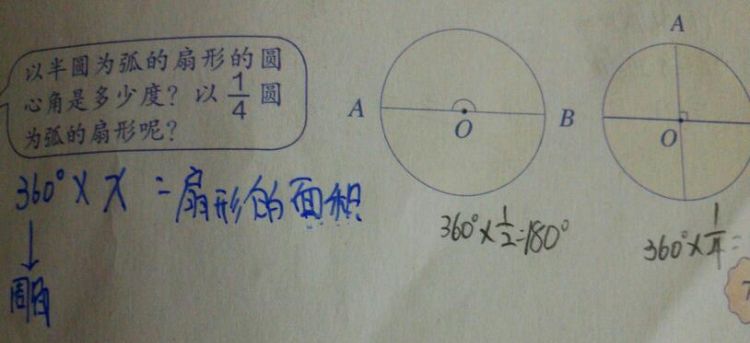 以半圆为弧的扇形的圆
心角是多少度？以1/4圆
为弧的扇形呢？
A
O
B
A
O
360°×x=扇形的面积
↓
360°×1/2=180°
360°×1/4=
7